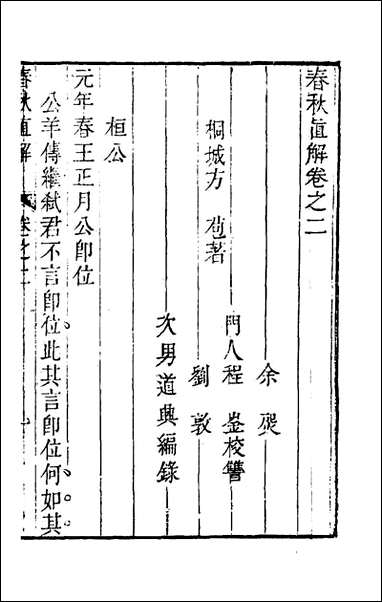 春秋直解卷之二
桐城方 苞著
余
門人程 崟校讐
劉 敦
次男道興編錄
桓公
元年春王正月公即位
公羊傳繼弒君不言即位此其言即位何如其
春秋直解 卷之二